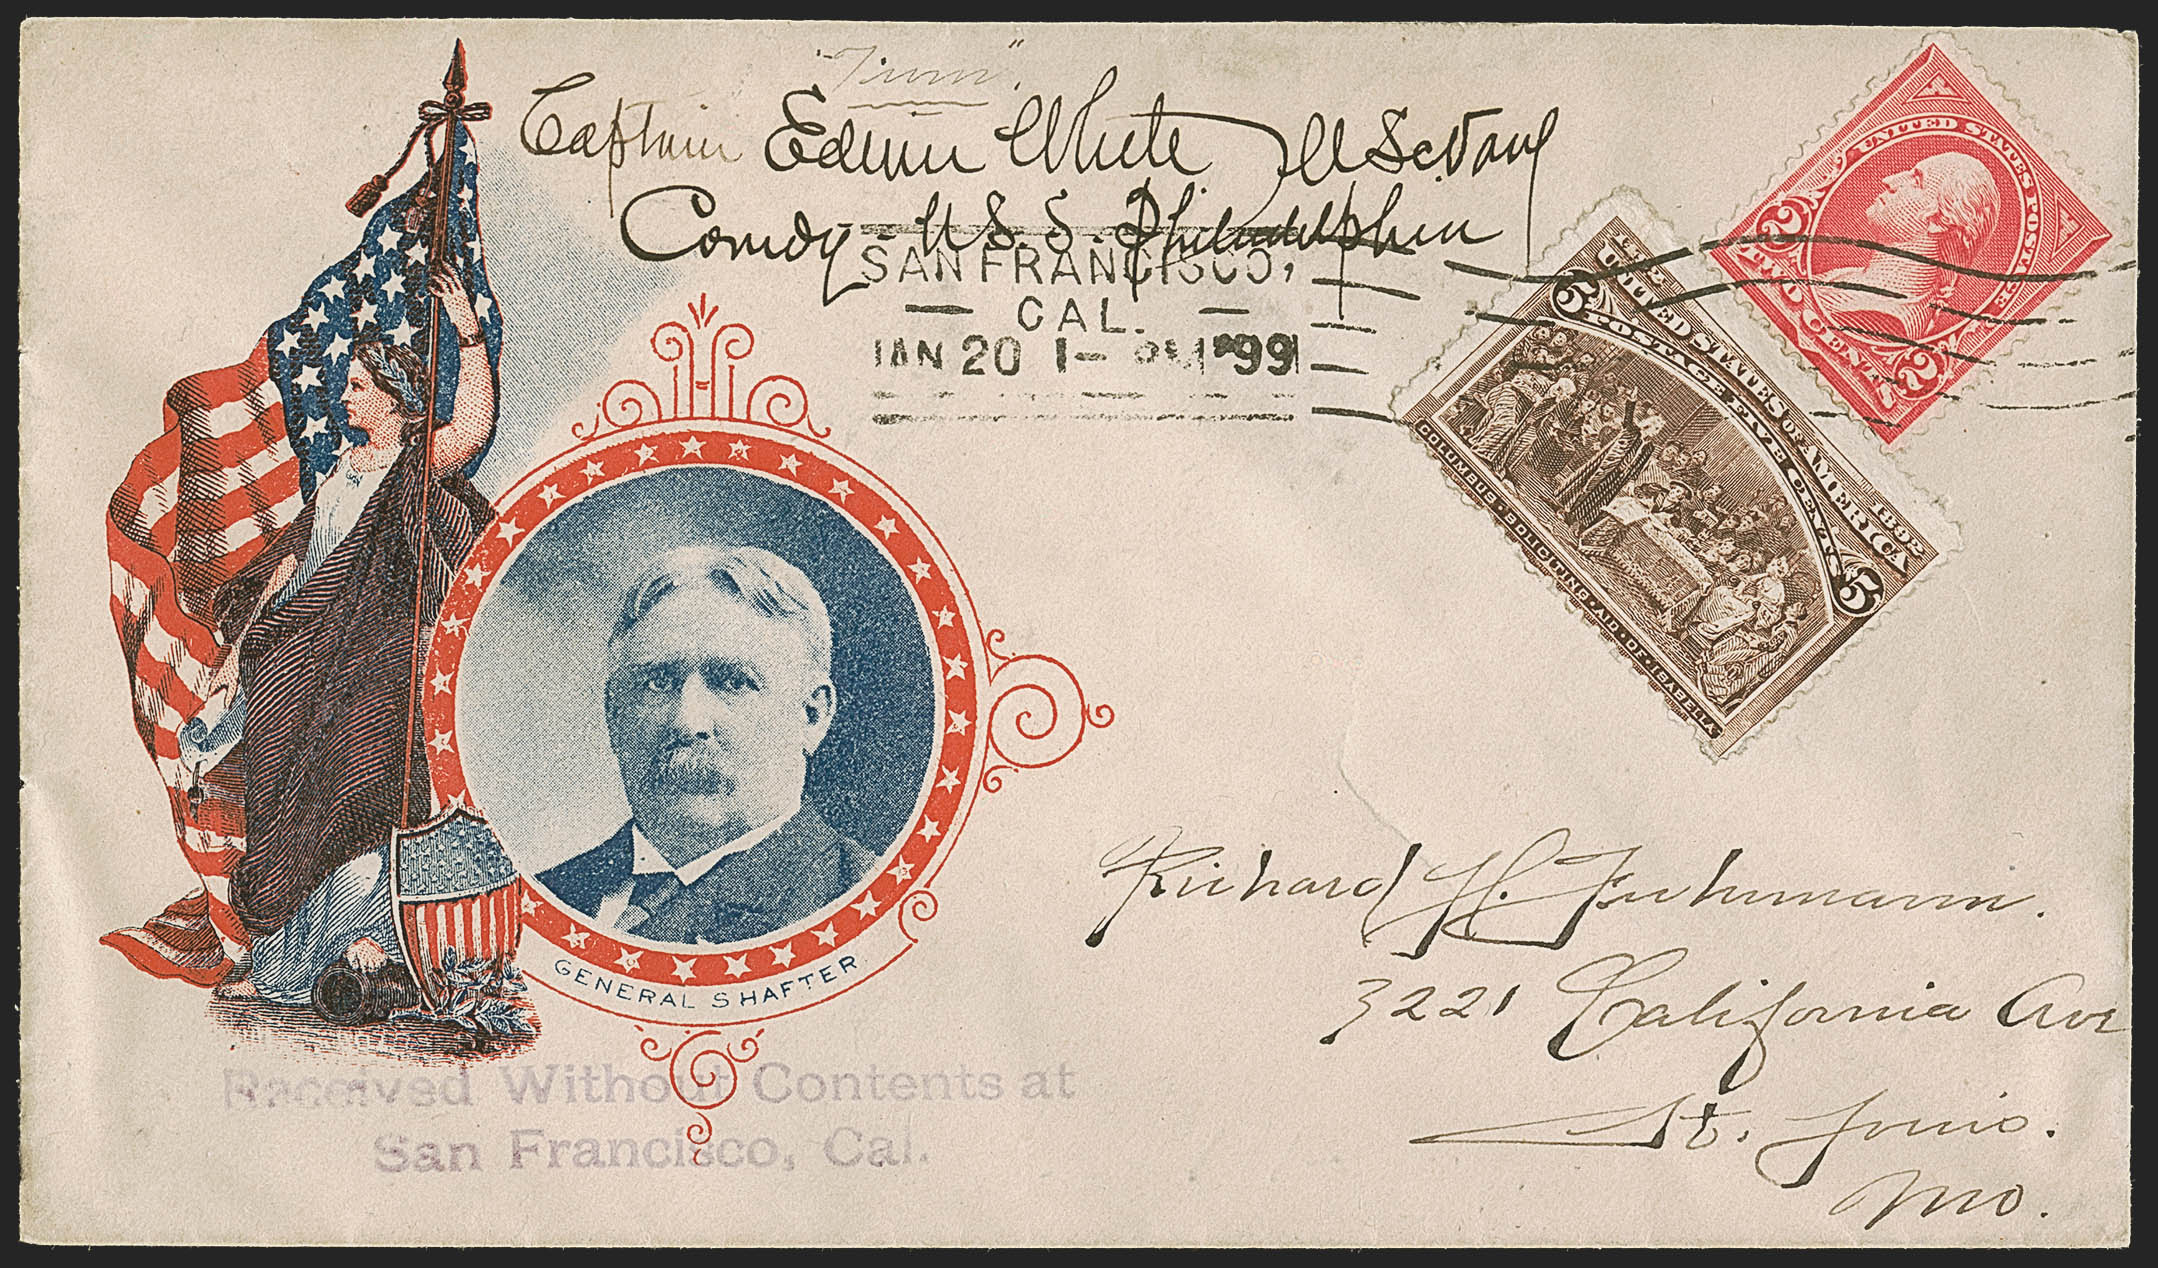 Captain Edwin White U S Navy
Comdg. U S. S. Philadelphia
SAN FRANCISCO,
CAL.
JAN 20 1— PM '99
UNITED STATES POSTAGE
2 TWO CENTS 2
1492 UNITED STATES OF AMERICA 1892
5 POSTAGE FIVE CENTS 5
COLUMBUS · SOLICITING · AID · OF · ISABELLA
GENERAL SHAFTER.
Richard H. Fuhrmann.
3221 California Ave
St. Louis.
Mo.
Received Without Contents at
San Francisco, Cal.